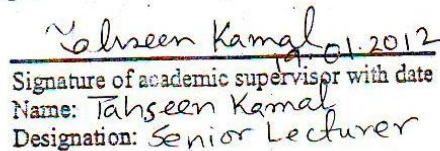 Tahseen Kamal
19.01.2012
Signature of academic supervisor with date
Name: Tahseen Kamal
Designation: Senior Lecturer